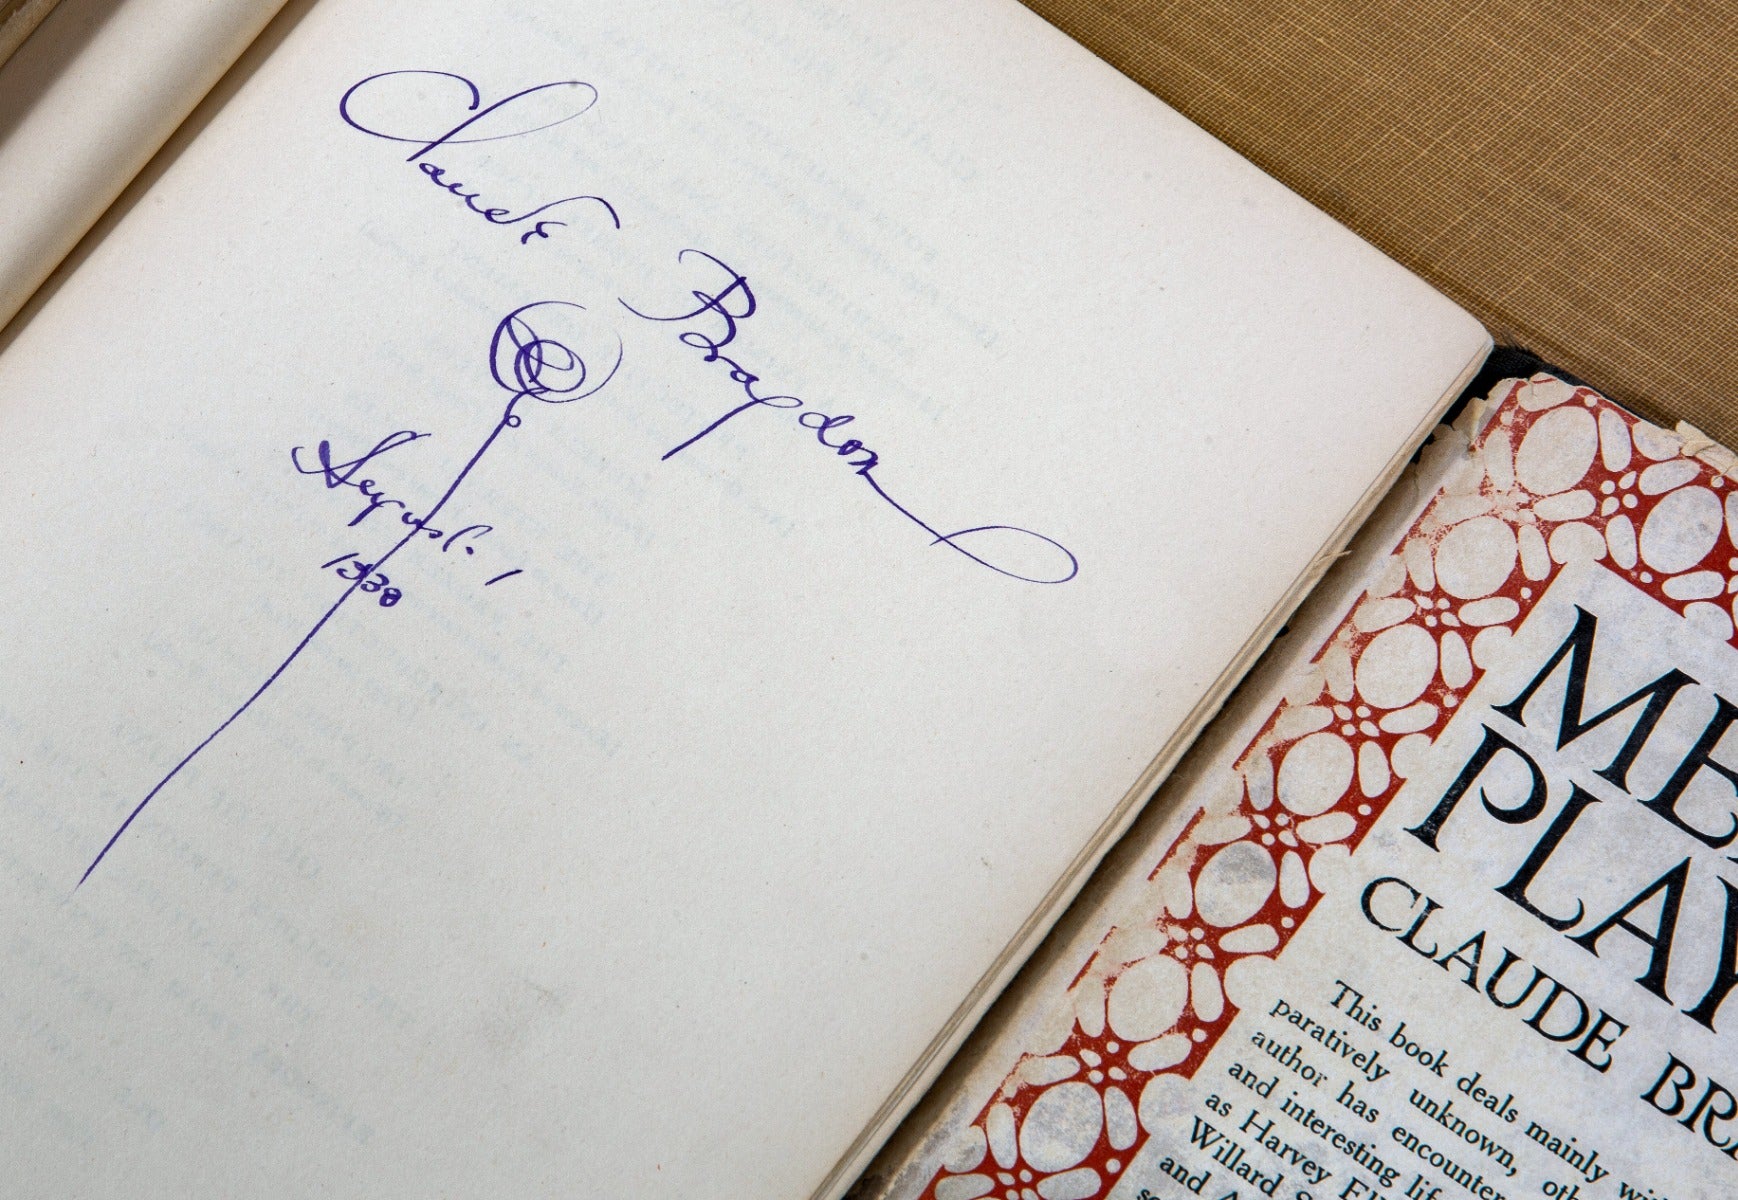 Claude Bragdon
August. 1
1938
ME
PLAY
CLAUDE BRA
This book deals mainly wi
paratively unknown, oth
author has encounter
and interesting life
as Harvey Ell
Willard S
and A